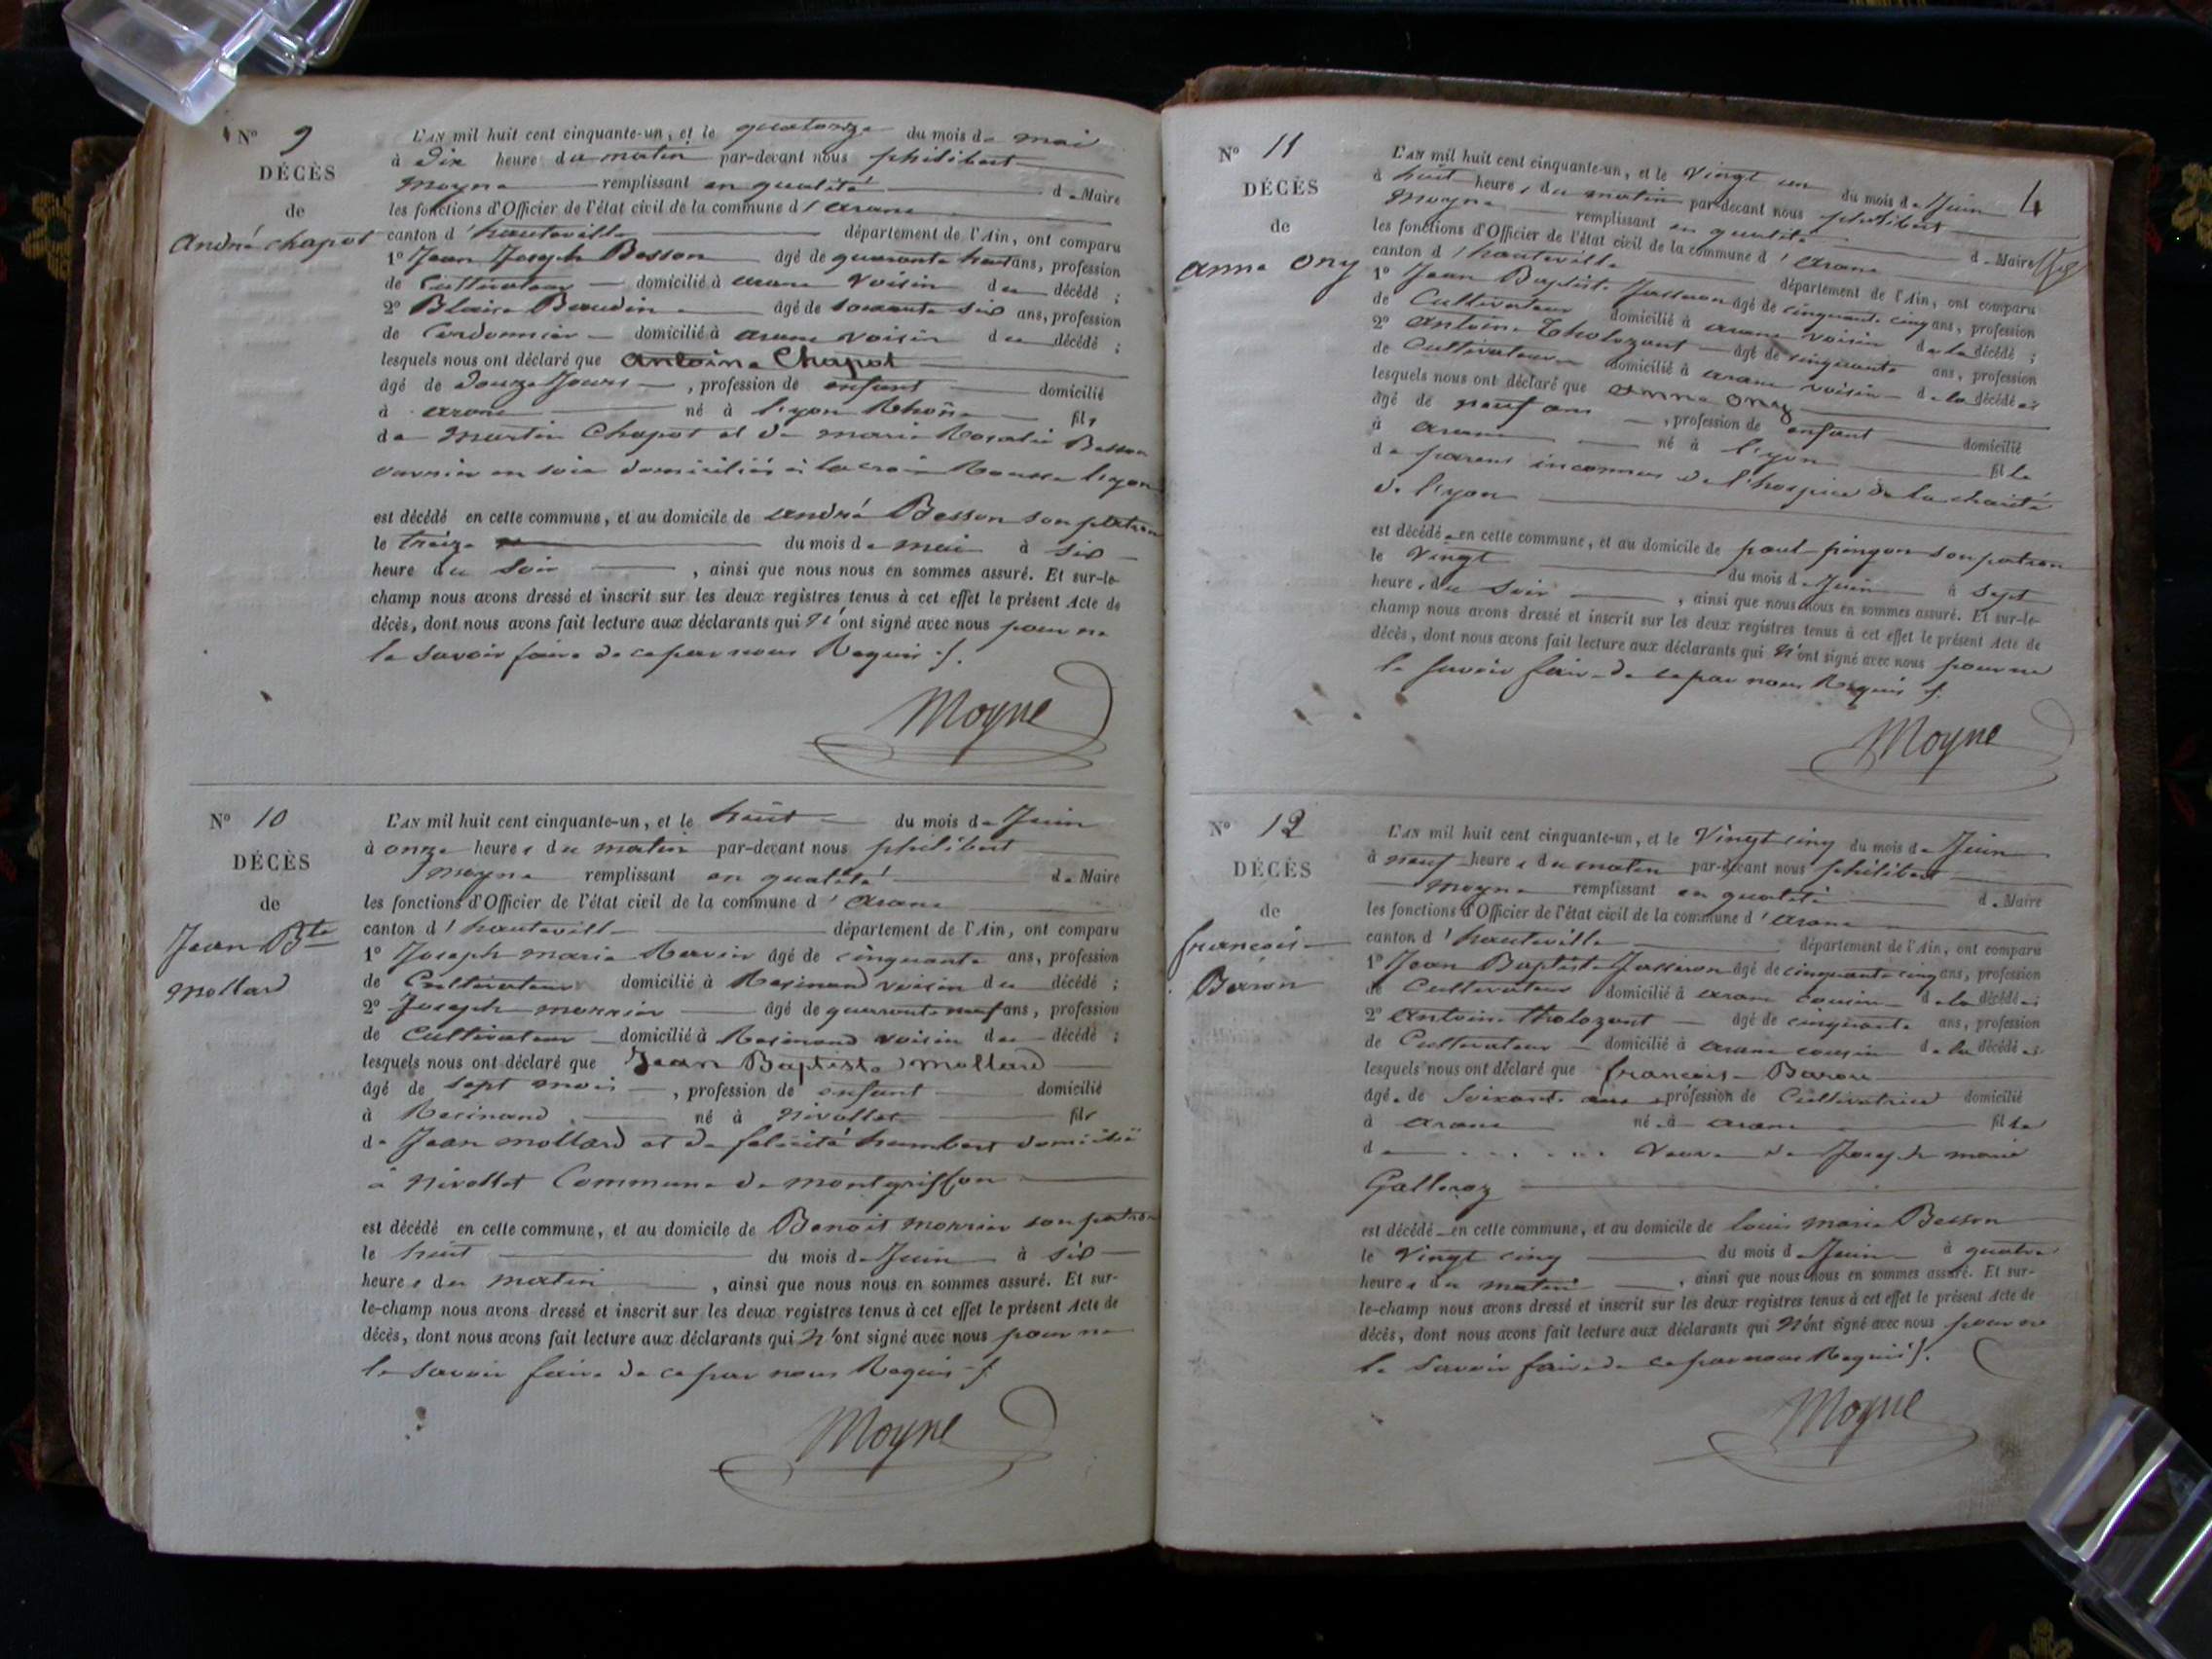 N° 9
DÉCÈS
de
André chapot
L'AN mil huit cent cinquante-un, et le quatorze du mois de mai
à dix heure du matin par-devant nous philibert
Moyne remplissant en qualité de Maire
les fonctions d'Officier de l'état civil de la commune d'arane
canton d'hauteville département de l'Ain, ont comparu
1° Jean Joseph Besson âgé de quarante huit ans, profession
de Cultivateur domicilié à arane voisin du décédé ;
2° Blaise Beaudin âgé de soixante six ans, profession
de Cordonnier domicilié à arane voisin du décédé ;
lesquels nous ont déclaré que antoine Chapot
âgé de douze Jours, profession de enfant domicilié
à arane né à lyon Rhône fils
de Martin Chapot et de marie Rosalie Besson
ouvrier en soie domiciliés à la croix Rousse lyon
est décédé en cette commune, et au domicile de andré Besson son patron
le treize du mois de mai à six
heure du Soir, ainsi que nous nous en sommes assuré. Et sur-le-
champ nous avons dressé et inscrit sur les deux registres tenus à cet effet le présent Acte de
décès, dont nous avons fait lecture aux déclarants qui n'ont signé avec nous pour ne
le savoir faire de ce par nous Requis
Moyne
N° 10
DÉCÈS
de
Jean Bte
Mollard
L'AN mil huit cent cinquante-un, et le huit du mois de Juin
à onze heures du matin par-devant nous philibert
Moyne remplissant en qualité de Maire
les fonctions d'Officier de l'état civil de la commune d'arane
canton d'hauteville département de l'Ain, ont comparu
1° Joseph marie âgé de cinquante ans, profession
de Cultivateur domicilié à Resinand voisin du décédé ;
2° Joseph monnier âgé de quarante neuf ans, profession
de Cultivateur domicilié à Resinand voisin du décédé ;
lesquels nous ont déclaré que Jean Baptiste Mollard
âgé de sept mois, profession de enfant domicilié
à Resinand né à Nivollet fils
de Jean mollard et de felicité humbert domicilié
à Nivollet Commune de montgriffon
est décédé en cette commune, et au domicile de Benoit monnier son patron
le huit du mois de Juin à six
heures du matin, ainsi que nous nous en sommes assuré. Et sur-
le-champ nous avons dressé et inscrit sur les deux registres tenus à cet effet le présent Acte de
décès, dont nous avons fait lecture aux déclarants qui n'ont signé avec nous pour ne
le savoir faire de ce par nous Requis
Moyne
4
N° 11
DÉCÈS
de
anne ony
L'AN mil huit cent cinquante-un, et le Vingt un du mois de Juin
à huit heures du matin par-devant nous philibert
Moyne remplissant en qualité de Maire
les fonctions d'Officier de l'état civil de la commune d'arane
canton d'hauteville département de l'Ain, ont comparu
1° Jean Baptiste Jasseron âgé de cinquante cinq ans, profession
de Cultivateur domicilié à arane voisin de la décédée ;
2° antoine Tholozant âgé de cinquante ans, profession
de Cultivateur domicilié à arane voisin de la décédée ;
lesquels nous ont déclaré que anne ony
âgé de neuf ans, profession de enfant domicilié
à arane né à lyon fille
de parens inconnus de l'hospice de la charité
de lyon
est décédée en cette commune, et au domicile de paul pingon son patron
le Vingt du mois de Juin à Sept
heures du Soir, ainsi que nous nous en sommes assuré. Et sur-le-
champ nous avons dressé et inscrit sur les deux registres tenus à cet effet le présent Acte de
décès, dont nous avons fait lecture aux déclarants qui n'ont signé avec nous pour ne
le savoir faire de ce par nous Requis
Moyne
N° 12
DÉCÈS
de
francoise
Baron
L'AN mil huit cent cinquante-un, et le Vingt cinq du mois de Juin
à neuf heures du matin par-devant nous philibert
Moyne remplissant en qualité de Maire
les fonctions d'Officier de l'état civil de la commune d'arane
canton d'hauteville département de l'Ain, ont comparu
1° Jean Baptiste Jasseron âgé de cinquante cinq ans, profession
de Cultivateur domicilié à arane cousin de la décédée ;
2° antoine tholozant âgé de cinquante ans, profession
de Cultivateur domicilié à arane cousin de la décédée ;
lesquels nous ont déclaré que francoise Baron
âgée de Soixante ans, profession de Cultivatrice domicilié
à arane née à arane fille
de . . . . . Veuve de Joseph marie
Galleroz
est décédée en cette commune, et au domicile de louis marie Besson
le Vingt cinq du mois de Juin à quatre
heures du matin, ainsi que nous nous en sommes assuré. Et sur-
le-champ nous avons dressé et inscrit sur les deux registres tenus à cet effet le présent Acte de
décès, dont nous avons fait lecture aux déclarants qui n'ont signé avec nous pour ne
le Savoir faire de ce par nous Requis
Moyne